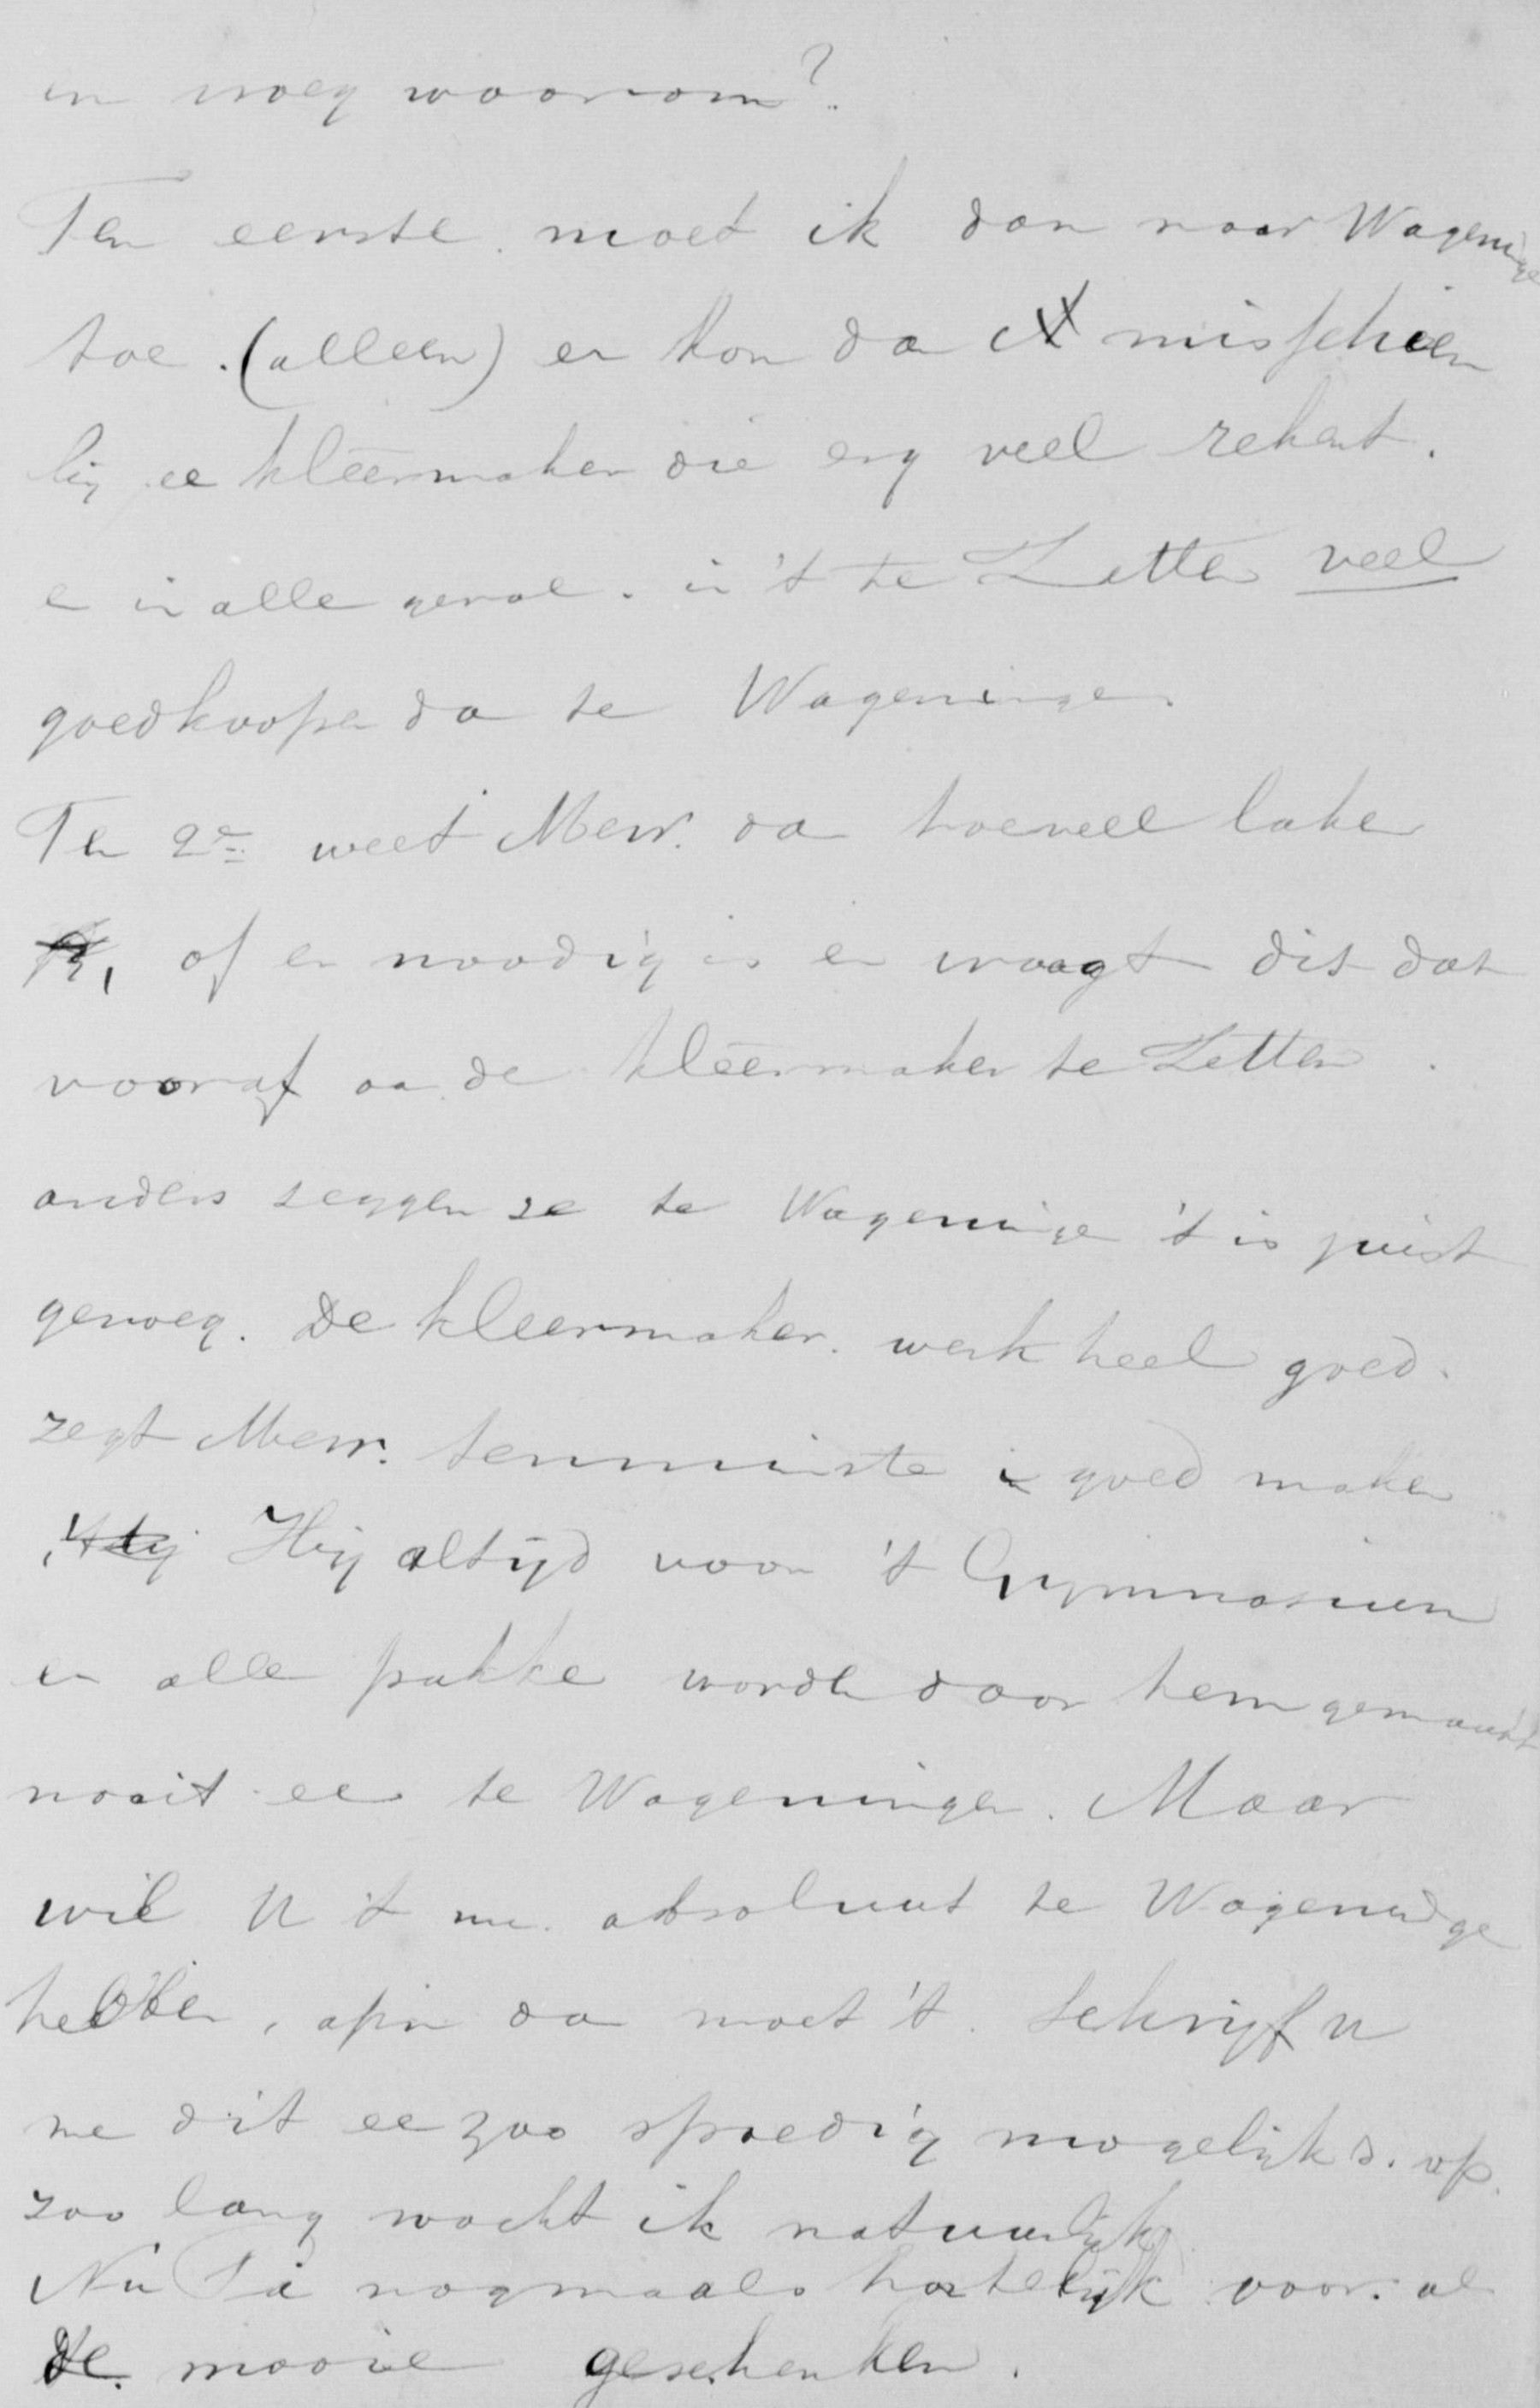 en vroeg waarom?
Ten eerste moet ik dan naar Wageninge
toe. (alleen) en kom da misschien
bij ee kleermaker die erg veel rekent.
e in alle geval. is 't te Zetten veel
goedkooper da te Wageningen
Ten 2e weet Mevr. da hoeveel laken
of er noodig is en vraagt dit dat
vooraf aa de kleermaker te Zetten.
anders zeggen ze te Wageninge 't is juist
genoeg. De kleermaker. werk heel goed.
zegt Mevr. tenminste goed maken
Hij altijd voor 't Gymnasium
en alle pakke worden door hem gemaakt
nooit ee te Wageningen. Maar
wil U 't nu absoluut te Wageninge
hebben, da moet 't. Schrijf U
me dit ee zoo spoedig mogelijk s. op.
zoo lang wacht ik natuurlijk.
Nu Pa nogmaals hartelijk voor al
de mooie geschenken.